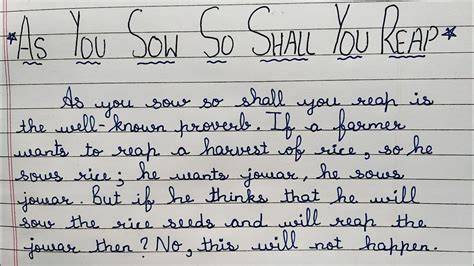 *As You Sow So Shall You Reap*
As you sow so shall you reap is
the well-known proverb. If a farmer
wants to reap a harvest of rice, so he
sows rice; he wants jowar, he sows
jowar. But if he thinks that he will
sow the rice seeds and will reap the
jowar then? No, this will not happen.